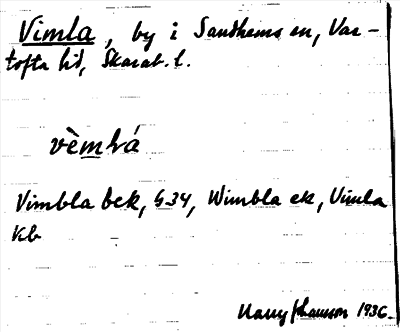 Vimla, by i Sandhems sn, Var-
tofta hd, Skarab. l.
vèmlrá
Vimbla bck, GS34, Wimbla ek, Vimla
Kb
Harry Jhansson 1936.